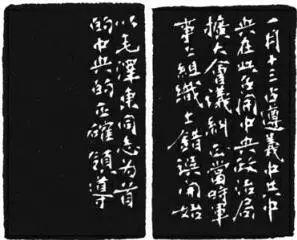 一月十三遵義中共中
央在此召開中央政治局
擴大會議糾正當時軍
事上組織上錯誤開始
以毛澤東同志為首
的中央的正確領導